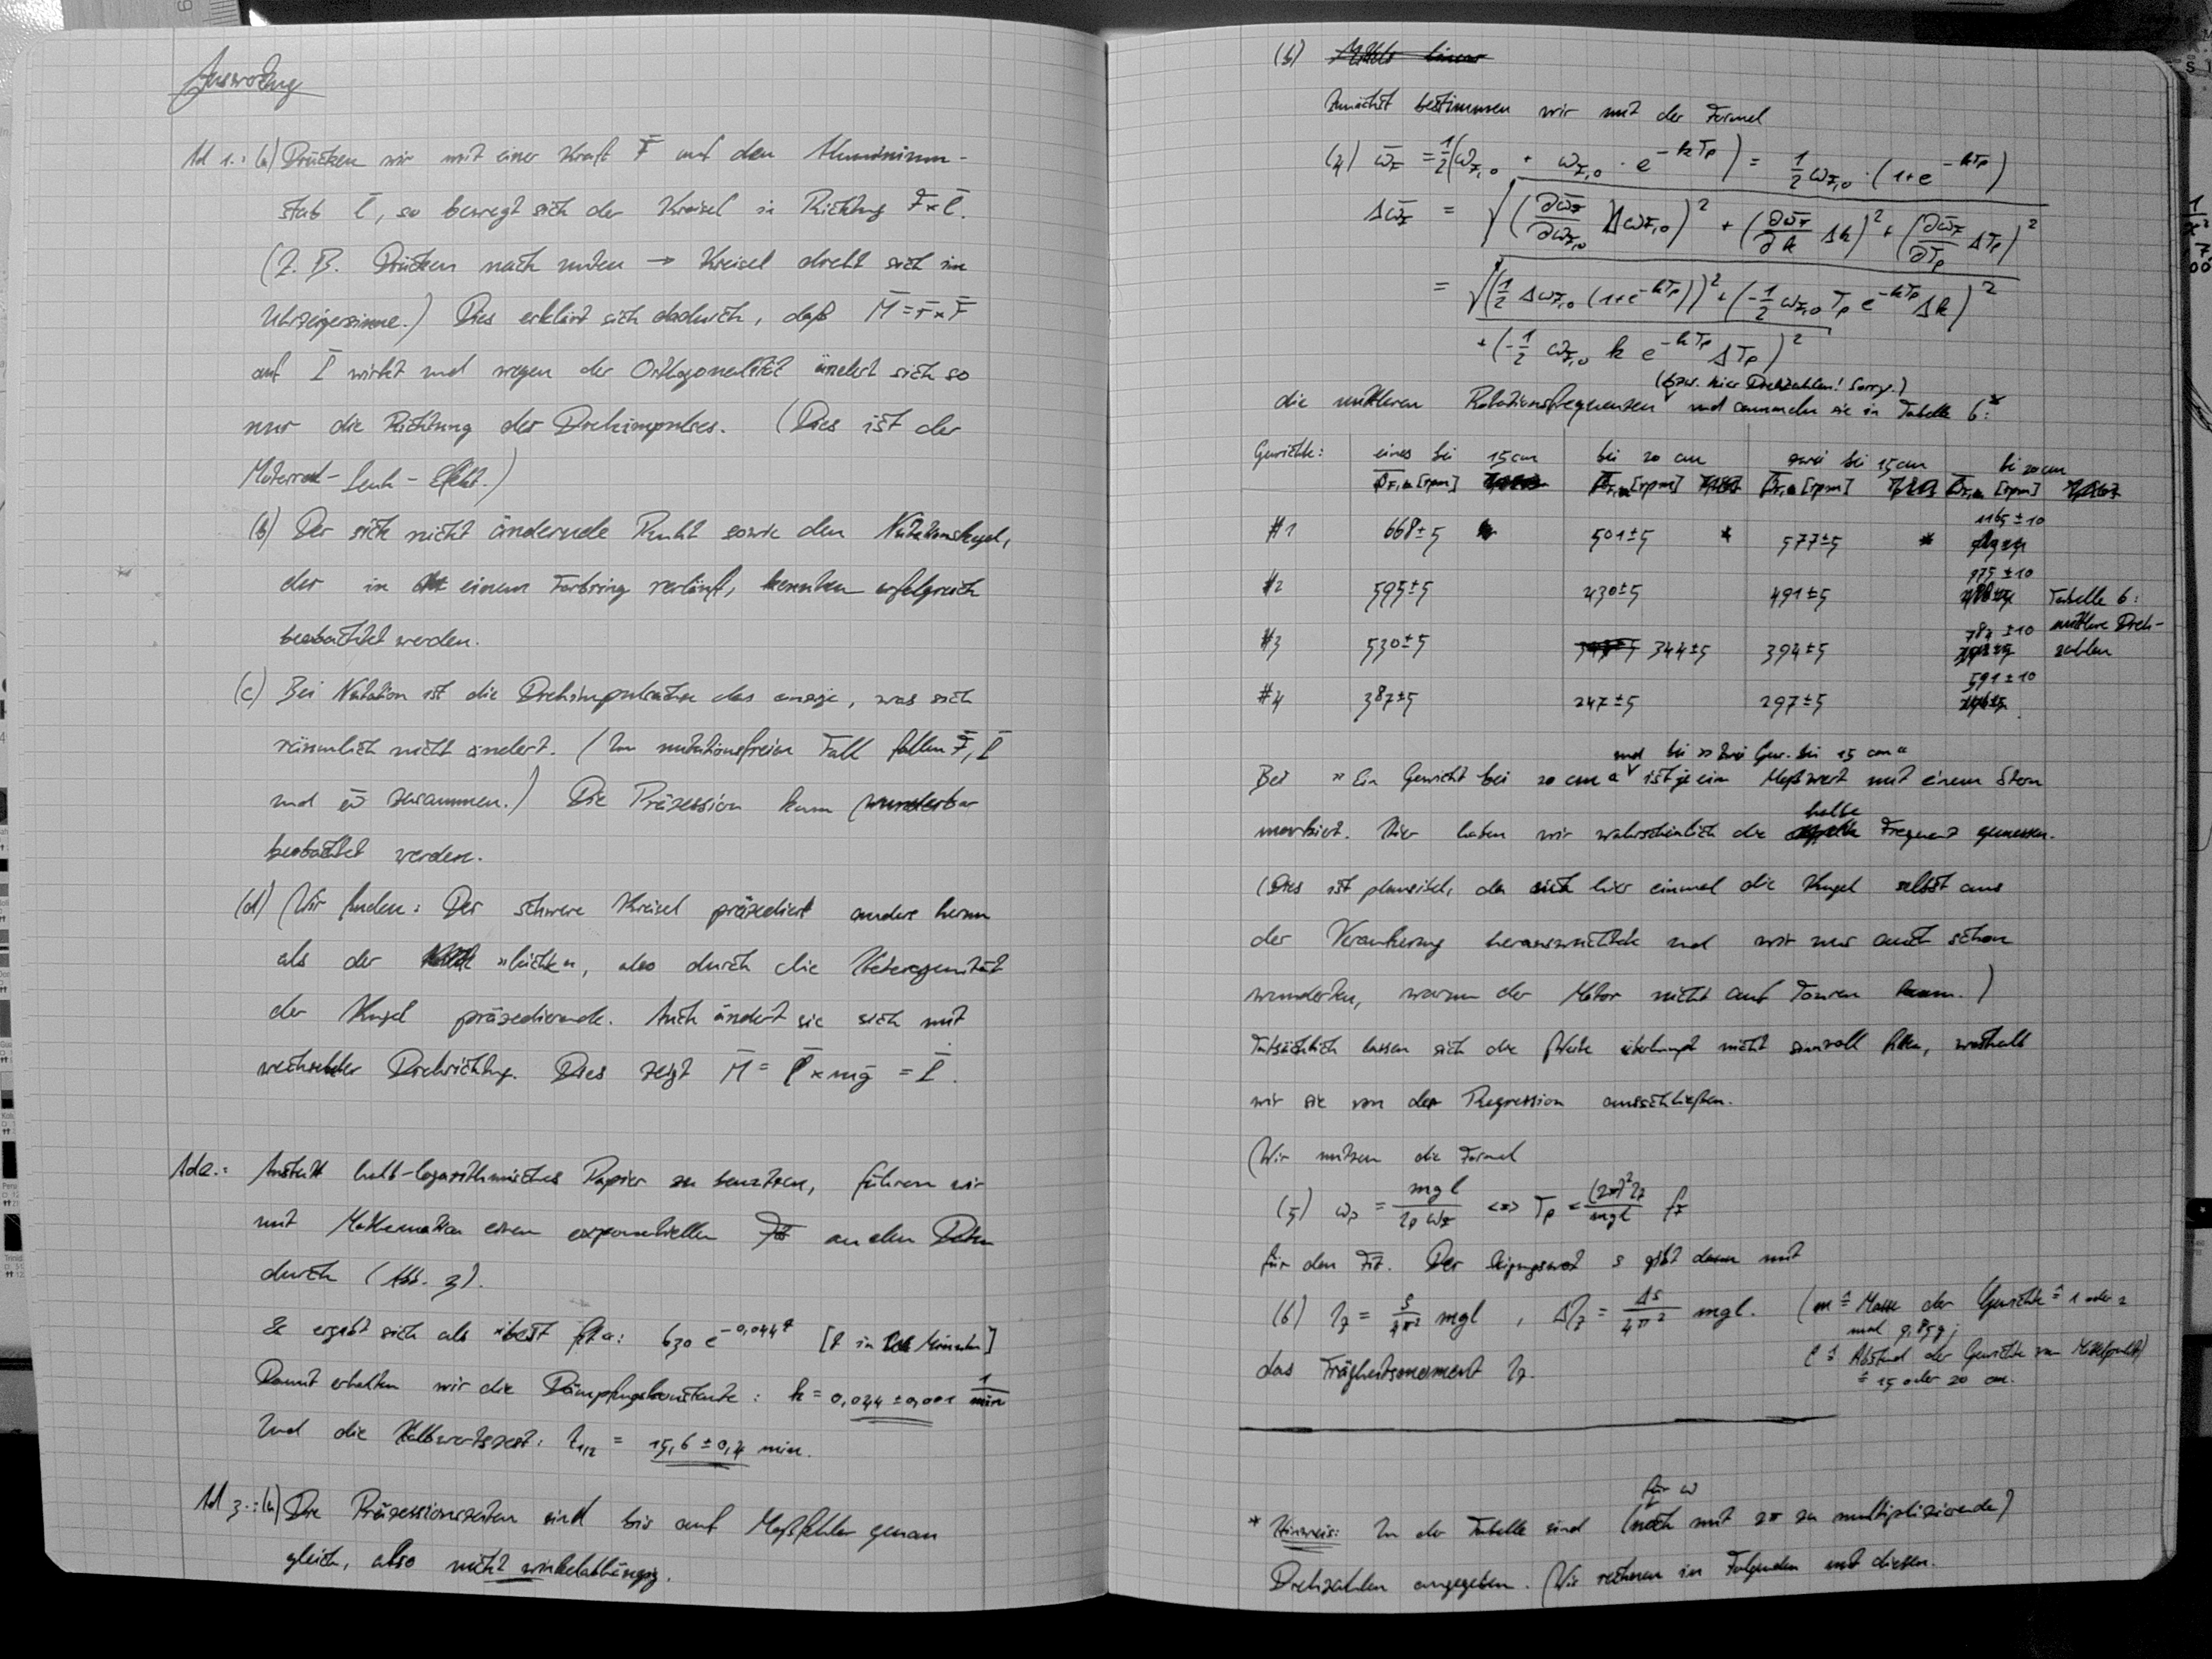 Auswertung
Ad 1.: (a) Drücken wir mit einer Kraft F̄ auf den Aluminium-
stab l̄, so bewegt sich der Kreisel in Richtung F̄×l̄.
(Z. B. Drücken nach unten → Kreisel dreht sich im
Uhrzeigersinne.) Dies erklärt sich dadurch, daß M̄ = r̄×F̄
auf L̄ wirkt und wegen der Orthogonalität ändert sich so
nur die Richtung des Drehimpulses. (Dies ist der
Motorrad-Lenk-Effekt.)
(b) Der sich nicht ändernde Punkt sowie den Nutationskegel,
der in einem Farbring verläuft, konnten erfolgreich
beobachtet werden.
(c) Bei Nutation ist die Drehimpulsachse das einzige, was sich
räumlich nicht ändert. (Im nutationsfreien Fall fallen F̄, L̄
und ω̄ zusammen.) Die Präzession kann wunderbar
beobachtet werden.
(d) Wir finden: Der schwere Kreisel präzediert anders herum
als der »leichte«, also durch die Heterogenität
der Kugel präzedierende. Auch ändert sie sich mit
wechselnder Drehrichtung. Dies zeigt M̄ = l̄×mḡ = L̄̇.
Ad 2.: Anstatt halb-logarithmisches Papier zu benutzen, führen wir
mit Mathematica einen exponentiellen Fit an den Daten
durch (Abb. 3).
Es ergibt sich als »best fit«: 630 e^(-0,044t) [t in Minuten]
Damit erhalten wir die Dämpfungskonstante: k = 0,044 ± 0,001 1/min
Und die Halbwertszeit: t_1/2 = 15,6 ± 0,4 min.
Ad 3.: (a) Die Präzessionszeiten sind bis auf Meßfehler genau
gleich, also nicht winkelabhängig.
(b)
Zunächst bestimmen wir mit der Formel
(4) ω̄_F = 1/2 (ω_F,0 + ω_F,0 · e^(-kT_P)) = 1/2 ω_F,0 · (1+e^(-kT_P))
Δω̄_F = √((∂ω̄_F/∂ω_F,0 Δω_F,0)² + (∂ω̄_F/∂k Δk)² + (∂ω̄_F/∂T_P ΔT_P)²
= √((1/2 Δω_F,0 (1+e^(-kT_P)))² + (-1/2 ω_F,0 T_P e^(-kT_P) Δk)²
+ (-1/2 ω_F,0 k e^(-kT_P) ΔT_P)²
(bzw. hier Drehzahlen! Sorry.)
die mittleren Rotationsfrequenzen und sammeln sie in Tabelle 6:*
Gewichte: eines bei 15 cm bei 20 cm zwei bei 15 cm bei 20 cm
[rpm] [rpm] [rpm] [rpm]
#1 668±5 501±5 * 577±5 * 1165±10
#2 595±5 430±5 491±5 975±10 Tabelle 6:
#3 530±5 344±5 394±5 787±10 mittlere Dreh-
zahlen
#4 387±5 247±5 297±5 591±10
und bei »zwei Gew. bei 15 cm«
Bei »Ein Gewicht bei 20 cm« ist je ein Meßwert mit einem Stern
markiert. Hier haben wir wahrscheinlich die halbe Frequenz gemessen.
(Dies ist plausibel, da sich hier einmal die Kugel selbst aus
der Verankerung herauswuchtete und wir uns auch schon
wunderten, warum der Motor nicht auf Touren kam.)
Tatsächlich lassen sich die Werte überhaupt nicht sinnvoll fitten, weshalb
wir sie von der Regression ausschließen.
Wir nutzen die Formel
(5) ω_P = mgl / I_P ω_F <=> T_P = (2π)² I_F / mgl f_F
für den Fit. Der Steigungswert s gibt dann mit
(6) I_F = s/4π² mgl , ΔI_F = Δs/4π² mgl. (m ≙ Masse der Gewichte ≙ 1 oder 2
mal 9,85g;
l ≙ Abstand der Gewichte vom Mittelpunkt)
≙ 15 oder 20 cm.
das Trägheitsmoment I_F.
für ω
* Hinweis: In der Tabelle sind (noch mit 2π zu multiplizierende)
Drehzahlen angegeben. Wir rechnen im Folgenden mit diesen.